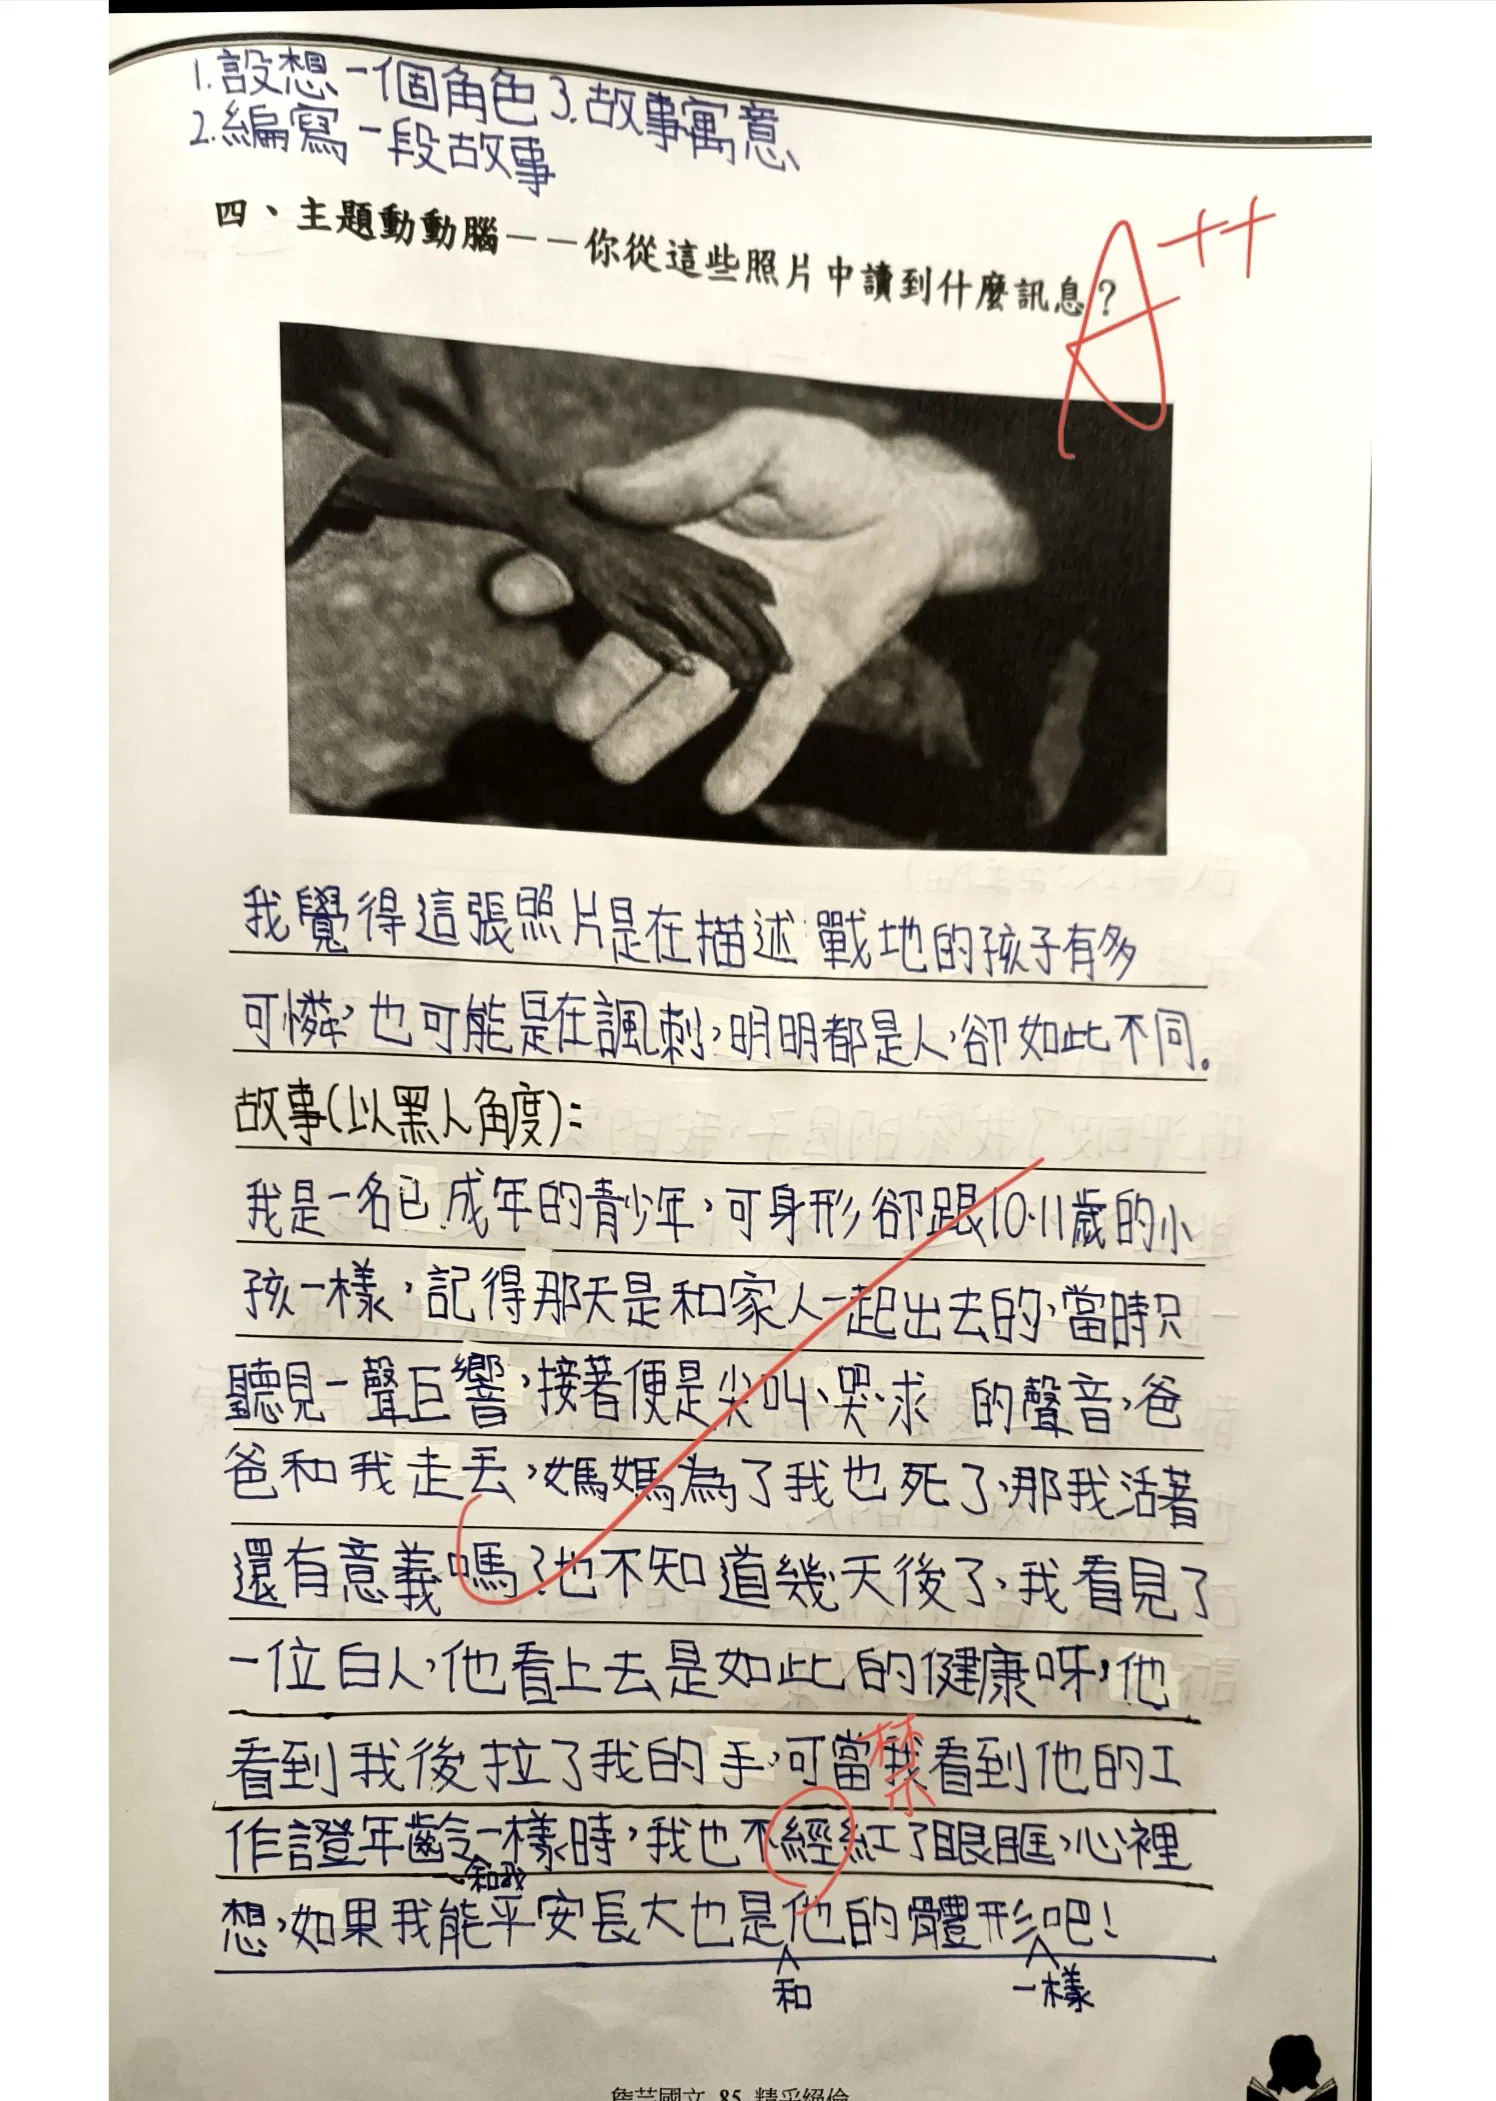 1.設想一個角色 3.故事寓意
2.編寫一段故事
四、主題動動腦——你從這些照片中讀到什麼訊息？
A++
我覺得這張照片是在描述戰地的孩子有多
可憐，也可能是在諷刺，明明都是人，卻如此不同。
故事(以黑人角度)：
我是一名已成年的青少年，可身形卻跟10、11歲的小
孩一樣，記得那天是和家人一起出去的，當時只
聽見一聲巨響，接著便是尖叫、哭、求 的聲音，爸
爸和我走丟，媽媽為了我也死了，那我活著
還有意義嗎？也不知道幾天後了，我看見了
一位白人，他看上去是如此的健康呀，他
看到我後拉了我的手，可當我看到他的工
禁
作證年齡一樣時，我也不經紅了眼眶，心裡
和我
想，如果我能平安長大也是他的體形吧！
和
一樣
詹芸國文 85 精采絕倫